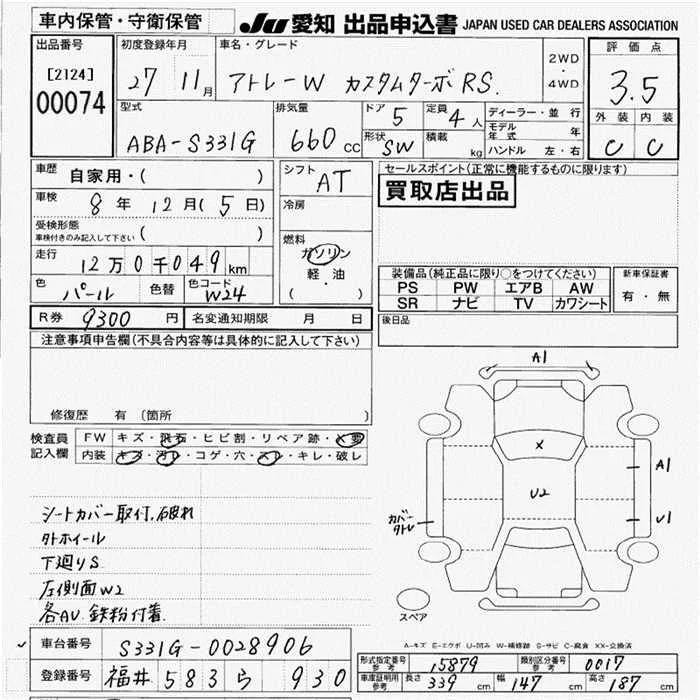 車内保管・守衛保管
JU 愛知 出品申込書 JAPAN USED CAR DEALERS ASSOCIATION
出品番号
[2124]
00074
初度登録年月
27 11月
車名・グレード
アトレーW カスタムターボRS.
2WD
・
4WD
評価点
3.5
外装 内装
C C
型式
ABA-S331G
排気量
660 CC
ドア 5
形状 SW
定員 4人
積載 kg
ディーラー・並行
モデル年式 年
ハンドル 左・右
車歴 自家用・( )
車検 8年 12月(5日)
受検形態
車検付きのみ記入して下さい ( )
走行 12万0千049km
色 パール 色替 色コード W24
シフト AT
冷房
燃料
ガソリン
軽・油
( ・ )
セールスポイント(正常に機能するものに限ります)
買取店出品
装備品(純正品に限り○をつけてください)
PS PW エアB AW
SR ナビ TV カワシート
新車保証書
有・無
R券 9300円 名変通知期限 月 日
後日品
注意事項申告欄(不具合内容等は具体的に記入して下さい)
修復歴 有(箇所 )
検査員記入欄
FW キズ・飛石・ヒビ割・リペア跡・X要
内装 キズ・汚レ・コゲ・穴・スレ・キレ・破レ
シートカバー取付.破れ
タトホイール
下廻りS
左側面W2
各AV 鉄粉付着
A1
X
U2
A1
U1
カバータトレ
スペア
A-キズ E-エクボ U-凹み W-補修跡 S-サビ C-腐食 XX-交換済
車台番号 S331G-0028906
登録番号 福井 583 ら 930
形式指定番号 参考 15879 類別区分番号 参考 0017
車庫証明用 参考 長さ 339cm 幅 147cm 高さ 187cm